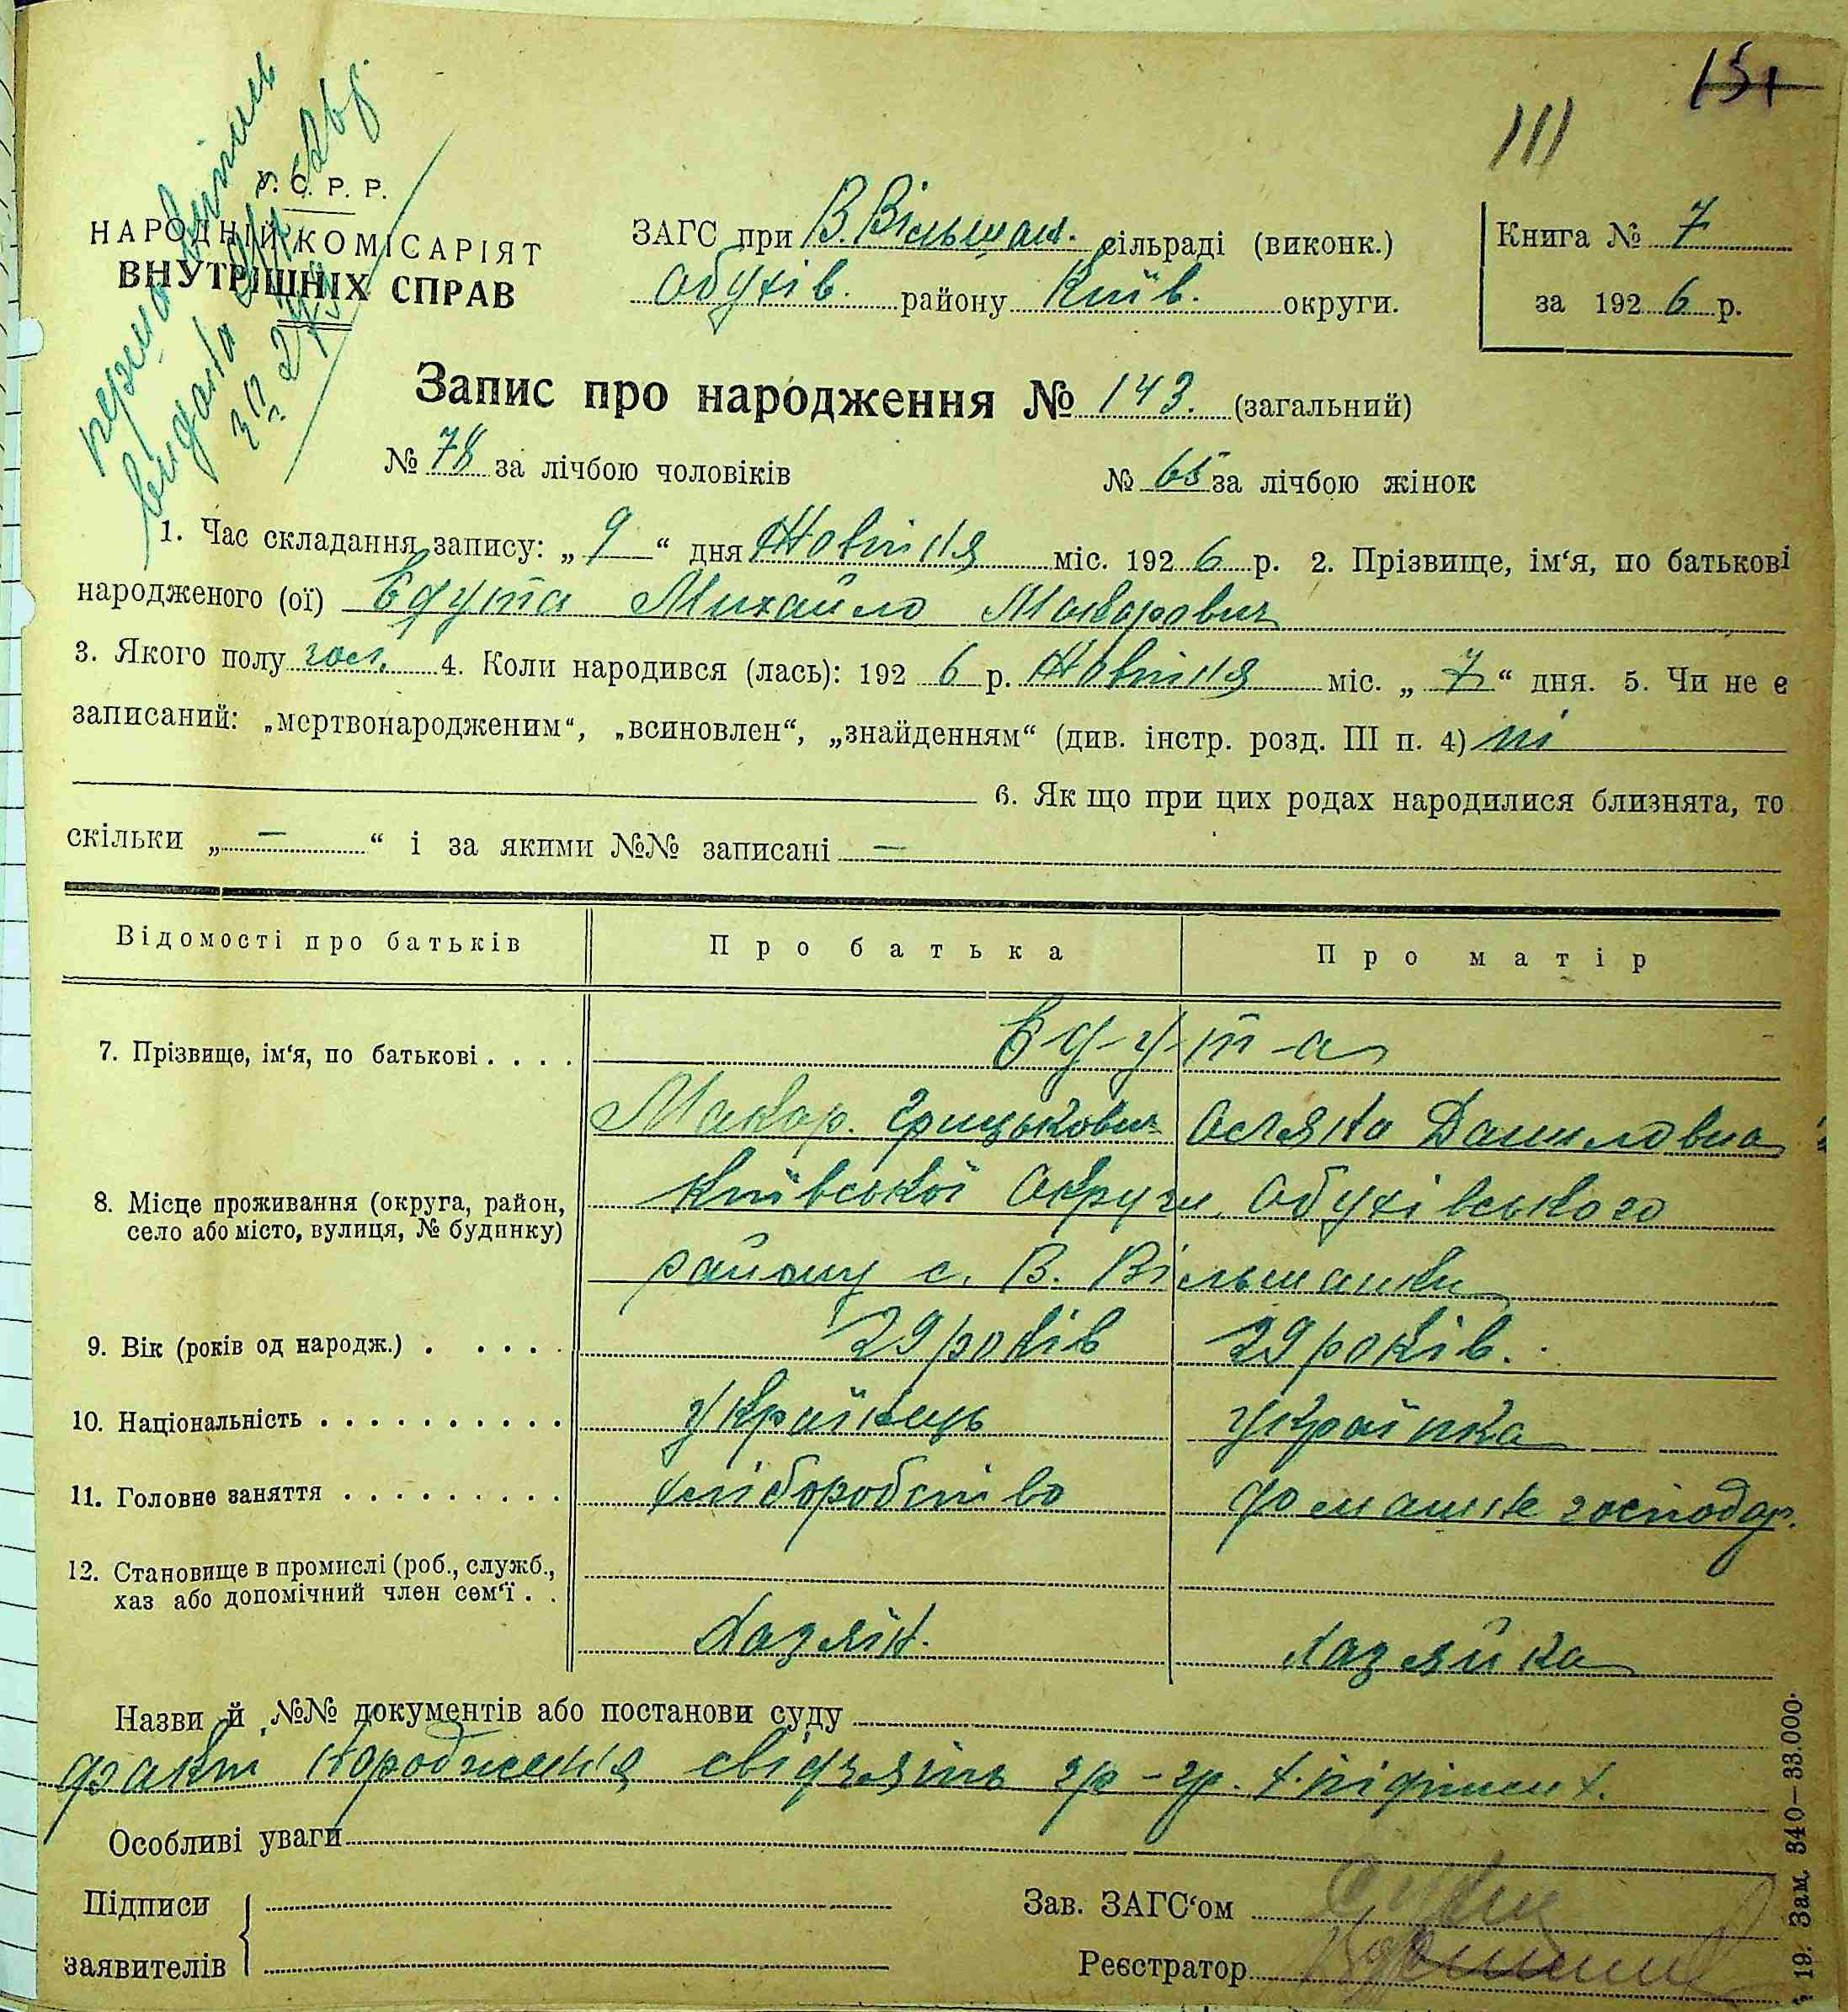 151
111
У. С. Р. Р.
НАРОДНІЙ КОМІСАРІЯТ
ВНУТРІШНІХ СПРАВ
ЗАГС при В. Вільшан. сільраді (виконк.)
Обухів. району Київ. округи.
Книга № 7
за 1926 р.
Запис про народження № 143. (загальний)
№ 78 за лічбою чоловіків № 65 за лічбою жінок
1. Час складання запису: „ 9 “ дня Жовтня міс. 1926 р. 2. Прізвище, ім‘я, по батькові
народженого (ої) Єдута Михайло Макарович
3. Якого полу чол. 4. Коли народився (лась): 1926 р. Жовтня міс. „ 7 “ дня. 5. Чи не є
записаний: „мертвонародженим“, „всиновлен“, „знайденням“ (див. інстр. розд. III п. 4) ні
6. Як що при цих родах народилися близнята, то
скільки „ — “ і за якими №№ записані —
Відомості про батьків Про батька Про матір
7. Прізвище, ім‘я, по батькові . . . . Є-д-у-т-а
Макар. Грицькович Оляна Даниловна
8. Місце проживання (округа, район,
село або місто, вулиця, № будинку)
Київської Округи Обухівського
району с. В. Вільшанки
9. Вік (років од народж.) . . . . . 29 років 29 років.
10. Національність . . . . . . . . . . Українець Українка
11. Головне заняття . . . . . . . . . хліборобство домашнє господар.
12. Становище в промислі (роб., служб.,
хаз або допомічний член сем‘ї . .
Хазяїн. Хазяйка
Назви й №№ документів або постанови суду
факт народження свідчять гр-гр.
Особливі уваги
Підписи
заявителів
Зав. ЗАГС‘ом
Реєстратор
19. Зам. 340—33.000.